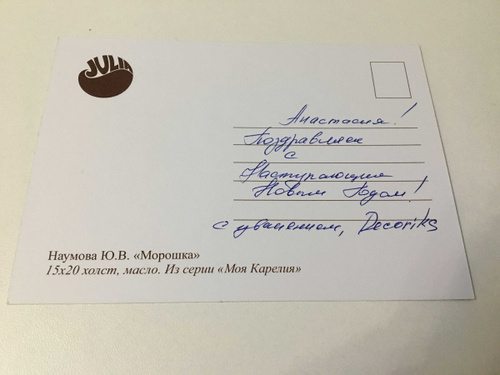 JULIA
Анастасия!
Поздравляем
с
Наступающим
Новым Годом!
с уважением, Decoriks
Наумова Ю.В. «Морошка»
15х20 холст, масло. Из серии «Моя Карелия»